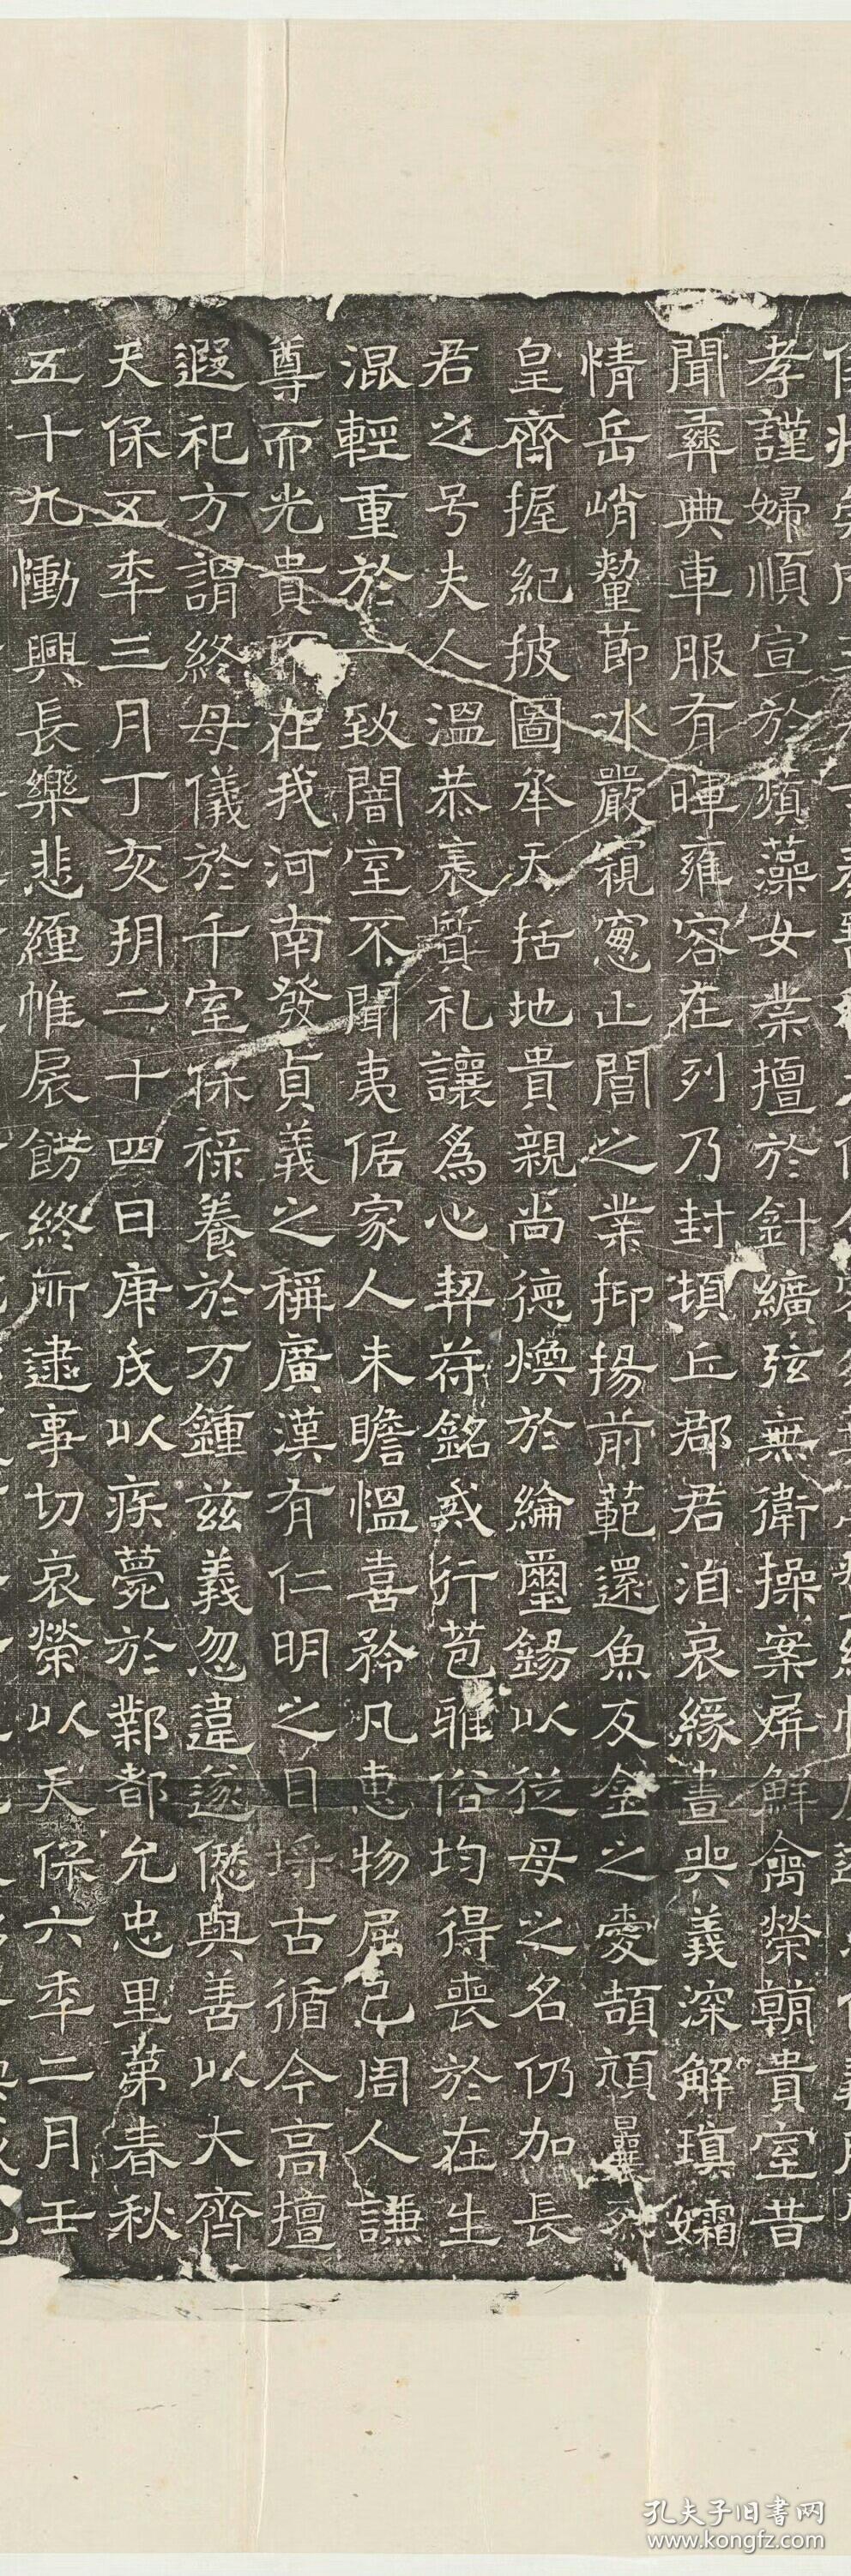 孝謹婦順宣於蘋藻女業擅於針纊弦無衛操案屏鮮禽榮朝貴室昔
聞彝典車服有暉雍容在列乃封頓丘郡君洎哀緣晝哭義深解瑱孀
情岳峭嫠節冰嚴窺窓止閭之業抑揚前範還魚反金之愛頡頏曩
皇齊握紀披圖承天括地貴親尚德煥於綸璽錫以從母之名仍加長
君之号夫人溫恭表質礼讓為心契苻銘戒行苞雅俗均得喪於在生
混輕重於一致闇室不聞夷倨家人未瞻慍喜矜凡惠物屈己周人謙
尊而光貴而在我河南發貞義之稱廣漢有仁明之目埒古循今高擅
遐祀方謂終母儀於千室保祿養於万鍾兹義忽違遂僁與善以大齊
天保五年三月丁亥朔二十四日庚戌以疾薨於鄴都允忠里第春秋
五十九慟興長樂悲纏帷扆餝終所逮事切哀榮以天保六年二月壬
孔夫子旧书网
www.kongfz.com